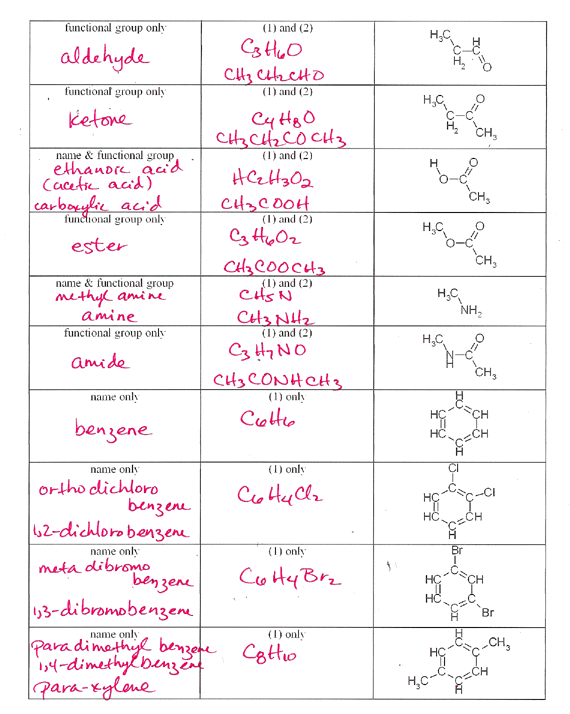 functional group only
aldehyde
(1) and (2)
C3H6O
CH3CH2CHO
H3C
C
H2
H
C
O
functional group only
ketone
(1) and (2)
C4H8O
CH3CH2COCH3
H3C
O
C
C
H2
CH3
name & functional group
ethanoic acid
(acetic acid)
carboxylic acid
(1) and (2)
HC2H3O2
CH3COOH
H
O
O
C
CH3
functional group only
ester
(1) and (2)
C3H6O2
CH3COOCH3
H3C
O
O
C
CH3
name & functional group
methyl amine
amine
(1) and (2)
CH5N
CH3NH2
H3C
NH2
functional group only
amide
(1) and (2)
C3H7NO
CH3CONHCH3
H3C
O
N
H
C
CH3
name only
benzene
(1) only
C6H6
H
C
HC
CH
HC
CH
C
H
name only
orthodichloro
benzene
1,2-dichlorobenzene
(1) only
C6H4Cl2
Cl
C
HC
C
Cl
HC
CH
C
H
name only
meta dibromo
benzene
1,3-dibromobenzene
(1) only
C6H4Br2
Br
C
HC
CH
HC
C
C
H
Br
name only
para dimethyl benzene
1,4-dimethylbenzene
para-xylene
(1) only
C8H10
H
C
HC
C
CH3
C
CH
H3C
C
H